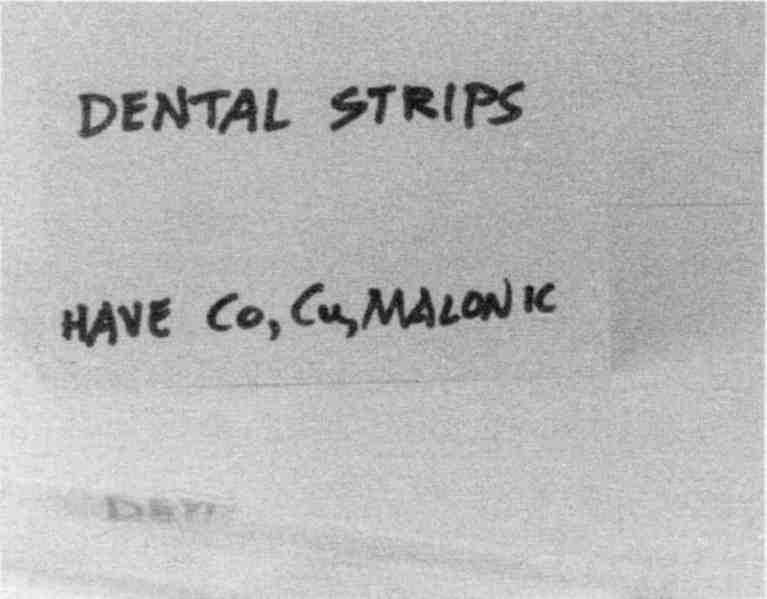 DENTAL STRIPS
HAVE Co, Cu, MALONIC